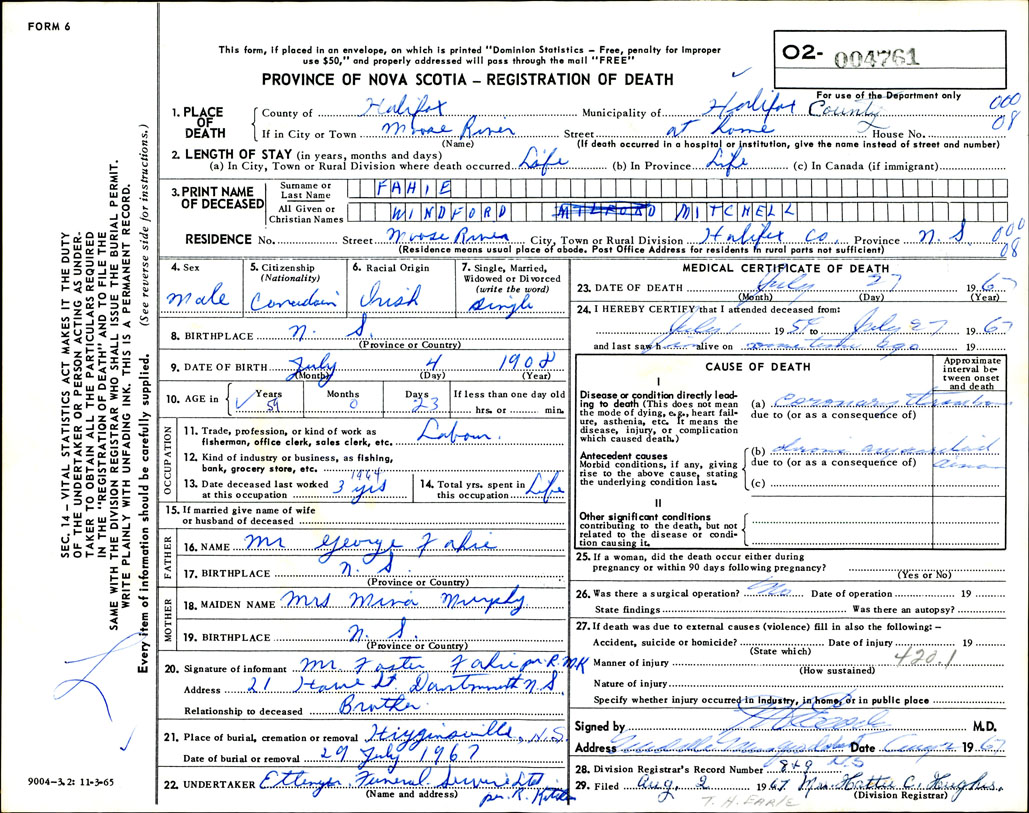 FORM 6
This form, if placed in an envelope, on which is printed "Dominion Statistics – Free, penalty for improper
use $50," and properly addressed will pass through the mail "FREE"
PROVINCE OF NOVA SCOTIA – REGISTRATION OF DEATH
02- 004761
For use of the Department only
000
08
1. PLACE OF DEATH
County of Halifax Municipality of Halifax County
If in City or Town Moose River Street at home House No.
(Name) (If death occurred in a hospital or institution, give the name instead of street and number)
2. LENGTH OF STAY (in years, months and days)
(a) In City, Town or Rural Division where death occurred Life (b) In Province Life (c) In Canada (if immigrant)
3. PRINT NAME OF DECEASED
Surname or Last Name FAHIE
All Given or Christian Names WINDFORD MITCHELL
RESIDENCE No. Street Moose River City, Town or Rural Division Halifax Co., Province N.S.
000
08
(Residence means usual place of abode. Post Office Address for residents in rural parts not sufficient)
4. Sex
Male
5. Citizenship
(Nationality)
Canadain
6. Racial Origin
Irish
7. Single, Married,
Widowed or Divorced
(write the word)
Single
8. BIRTHPLACE N. S.
(Province or Country)
9. DATE OF BIRTH July 4 1908
(Month) (Day) (Year)
10. AGE in
Years Months Days If less than one day old
59 0 23 hrs. or min.
OCCUPATION
11. Trade, profession, or kind of work as
fisherman, office clerk, sales clerk, etc. Labour.
12. Kind of industry or business, as fishing,
bank, grocery store, etc.
13. Date deceased last worked
at this occupation 1964 3 yrs
14. Total yrs. spent in
this occupation Life
15. If married give name of wife
or husband of deceased
FATHER
16. NAME Mr George Fahie
17. BIRTHPLACE N. S.
(Province or Country)
MOTHER
18. MAIDEN NAME Mrs Mina Murphy
19. BIRTHPLACE N. S.
(Province or Country)
20. Signature of informant Mr Foster Fahie per R. MK
Address 21 Howe St Dartmouth N.S.
Relationship to deceased Brother
21. Place of burial, cremation or removal Higginsville, N.S.
Date of burial or removal 29 July 1967
22. UNDERTAKER Ettinger Funeral Service Ltd
(Name and address) per R.
MEDICAL CERTIFICATE OF DEATH
23. DATE OF DEATH July 27 1967
(Month) (Day) (Year)
24. I HEREBY CERTIFY that I attended deceased from:
July 1 19 to July 27 1967
and last saw him alive on ago 19
CAUSE OF DEATH
Approximate interval between onset and death
I
Disease or condition directly leading to death (This does not mean the mode of dying, e.g., heart failure, asthenia, etc. It means the disease, injury, or complication which caused death.)
(a) Coronary
due to (or as a consequence of)
Antecedent causes
Morbid conditions, if any, giving rise to the above cause, stating the underlying condition last.
(b)
due to (or as a consequence of)
(c)
II
Other significant conditions
contributing to the death, but not related to the disease or condition causing it.
25. If a woman, did the death occur either during
pregnancy or within 90 days following pregnancy?
(Yes or No)
26. Was there a surgical operation? No Date of operation 19
State findings Was there an autopsy?
27. If death was due to external causes (violence) fill in also the following:–
Accident, suicide or homicide? Date of injury 19
(State which)
Manner of injury 420.1
(How sustained)
Nature of injury
Specify whether injury occurred in industry, in home, or in public place
Signed by M.D.
Address Date Aug 2 1967
28. Division Registrar's Record Number 8 & 9 N.S
29. Filed Aug. 2 1967 Mrs. Hattie C. Hughes.
(Division Registrar)
T. H. EARLE
SEC. 14 – VITAL STATISTICS ACT MAKES IT THE DUTY
OF THE UNDERTAKER OR PERSON ACTING AS UNDER-
TAKER TO OBTAIN ALL THE PARTICULARS REQUIRED
IN THE "REGISTRATION OF DEATH" AND TO FILE THE
SAME WITH THE DIVISION REGISTRAR WHO SHALL ISSUE THE BURIAL PERMIT.
WRITE PLAINLY WITH UNFADING INK. THIS IS A PERMANENT RECORD.
Every item of information should be carefully supplied. (See reverse side for instructions.)
9004–3.2: 11-3-65